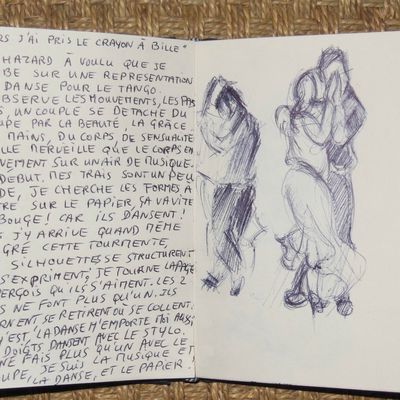 RS J'AI PRIS LE CRAYON À BILLE"
HAZARD A VOULU QUE JE
BE SUR UNE REPRESENTATION
DANSE POUR LE TANGO.
OBSERVE LES MOUVEMENTS, LES PAS
S, UN COUPLE SE DETACHE DU
UPE PAR LA BEAUTÉ, LA GRÂCE
MAINS, DU CORPS DE SENSUALITÉ
LLE MERVEILLE QUE LE CORPS EN
NEMENT SUR UN AIR DE MUSIQUE.
DEBUT, MES TRAIS SONT UN PEU
DE, JE CHERCHE LES FORMES À
TRE SUR LE PAPIER, ÇA VA VITE
BOUGE! CAR ILS DANSENT!
S J'Y ARRIVE QUAND MÊME
GRÉ CETTE TOURMENTE,
SILHOUETTES SE STRUCTURENT
S'EXPRIMENT, JE TOURNE LA PAGE
PERÇOIS QU'ILS S'AIMENT. LES 2
S NE FONT PLUS QU'UN. ILS
RNENT SE RETIRENT OU SE COLLENT.
Y'EST, LA DANSE M'EMPORTE MOI AUSSI
DOIGTS DANSENT AVEC LE STYLO.
NE FAIS PLUS QU'UN AVEC LE
UPE, JE SUIS LA MUSIQUE ET
LA DANSE, ET LE PAPIER!